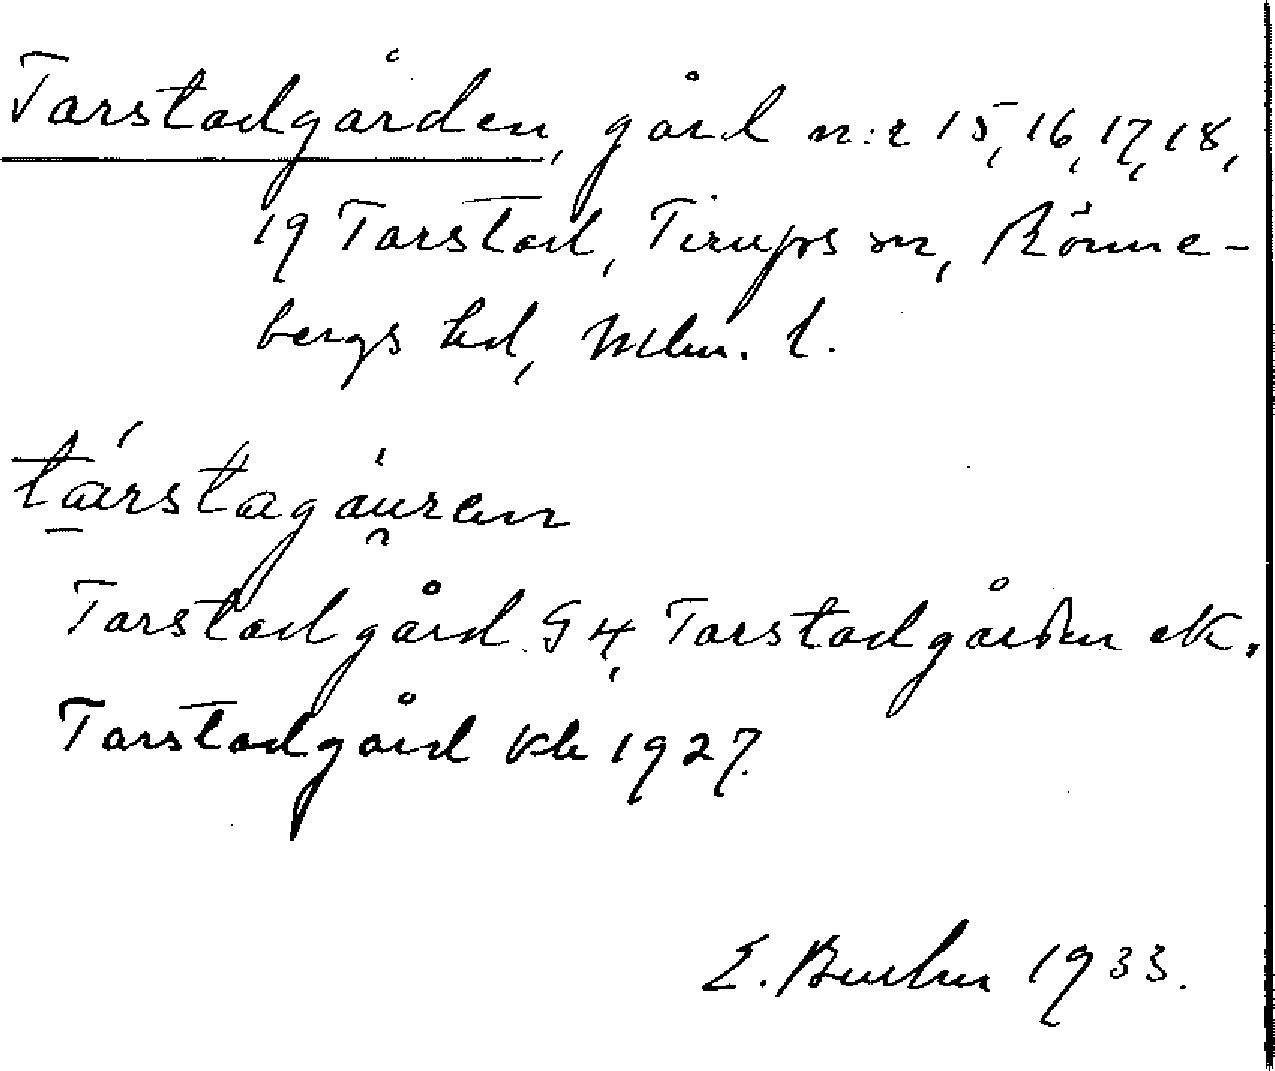 Tarstadgården, gård n:r 15, 16, 17, 18,
19 Tarstad, Tirups sn, Rönne-
bergs hd, Mlm. l.
tarstagauren
Tarstad gård G 4, Tarstadgården ek.
Tarstadgård kb 1927.
E. 1933.